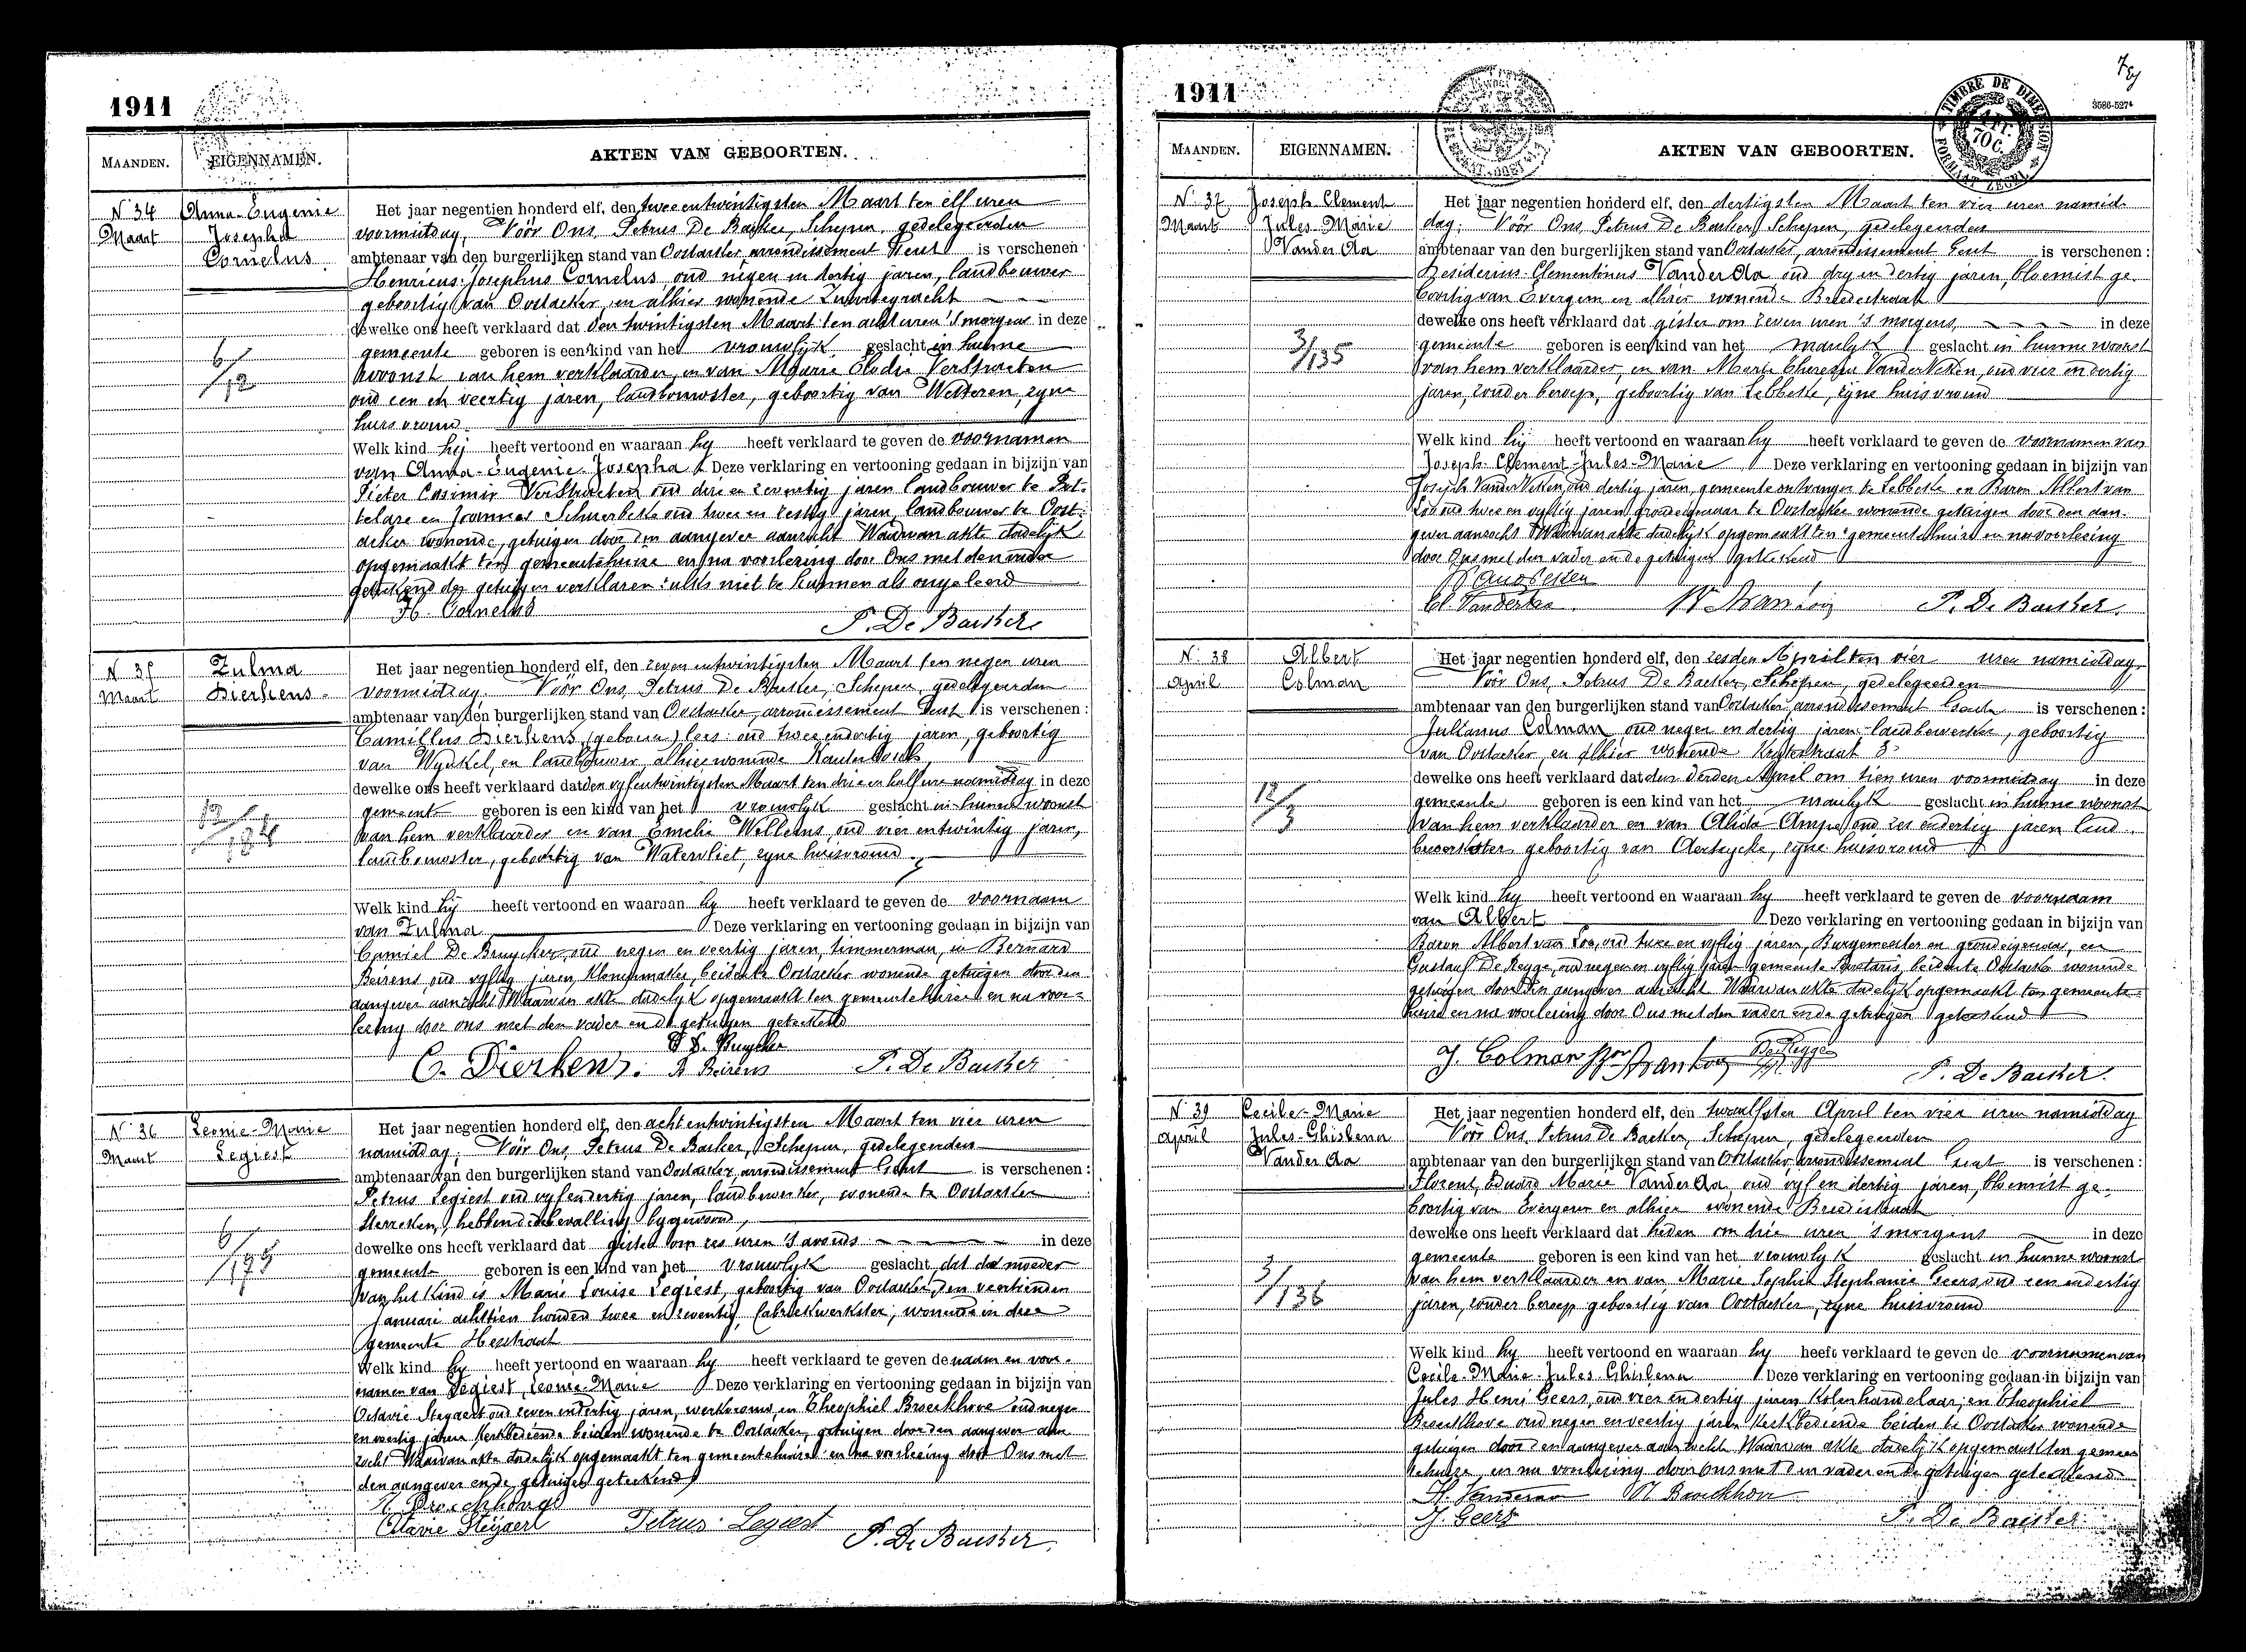 1911
MAANDEN.
EIGENNAMEN.
AKTEN VAN GEBOORTEN.
N 34
Maart
Anna-Eugenie
Josepha
Cornelus
Het jaar negentien honderd elf, den twee entwintigsten Maart ten elf uren
voormiddag, Vöör Ons, Petrus De Backer, Schepen, gedelegeerden
ambtenaar van den burgerlijken stand van Oostacker, arrondissement Gent is verschenen:
Henricus Josephus Cornelus oud negen en dertig jaren, landbouwer
geboortig van Oostacker, en alhier wonende
dewelke ons heeft verklaard dat den twintigsten Maart ten acht uren 's morgens in deze
gemeente geboren is een kind van het vrouwlijk geslacht in hunne
woonst van hem verklaarder, en van Marie Elodie VerStraeten
oud een en veertig jaren, landbouwster, geboortig van Wetteren, zyne
huisvrouw
Welk kind hij heeft vertoond en waaraan hy heeft verklaard te geven de voornamen
van Anna-Eugenie-Josepha Deze verklaring en vertooning gedaan in bijzijn van
Pieter Casimir VerStraeten oud drie en zeventig jaren landbouwer te Des-
telare en Joannes oud twee en zestig jaren, landbouwer te Oost-
acker wonende, getuigen door den aangever aanzocht Waarvan akte dadelyk
opgemaakt ten gemeentehuize en na voorlezing door Ons met den vader
geteekend de getuigen verklaren zulks niet te kunnen als ongeleerd
H. Cornelus
P. De Backer
6/12
N 35
Maart
Zulma
Dierkens
Het jaar negentien honderd elf, den zeven entwintigsten Maart ten negen uren
voormiddag. Vöör Ons, Petrus De Backer, Schepen, gedelegeerden
ambtenaar van den burgerlijken stand van Oostacker, arrondissement Gent is verschenen:
Camillus Dierkens (geboren) oud twee endertig jaren, geboortig
van Wynkel, en landbouwer, alhier wonende
dewelke ons heeft verklaard dat den vyf entwintigsten Maart ten drie en half ure namiddag in deze
gemeente geboren is een kind van het vrouwlyk geslacht in hunne woonst
van hem verklaarder en van Emelie Willems oud vier entwintig jaren,
landbouwster, geboortig van Watervliet, zyne huisvrouw
Welk kind hij heeft vertoond en waaraan hy heeft verklaard te geven de voornaam
van Zulma Deze verklaring en vertooning gedaan in bijzijn van
Camiel De Bruycker oud negen en veertig jaren, timmerman, en Bernard
Beirens, oud vyftig jaren, Klompmaker, beiden te Oostacker wonende getuigen door den
aangever aanzocht Waarvan akte dadelyk opgemaakt ten gemeentehuize en na voor-
lezing door ons met den vader en de getuigen geteekend
C. Dierkens B. Beirens P. De Backer
N 36
Maart
Leonie-Marie
Segiest
Het jaar negentien honderd elf, den acht entwintigsten Maart ten vier uren
namiddag; Vöör Ons, Petrus De Backer, Schepen, gedelegeerden
ambtenaar van den burgerlijken stand van Oostacker, arrondissement Gent is verschenen:
Petrus Segiest oud vyf endertig jaren, landbewerker, wonende te Oostacker
hebbende de bevalling bygewoond,
dewelke ons heeft verklaard dat gister om zes uren 's avonds in deze
gemeente geboren is een kind van het vrouwlyk geslacht, dat de moeder
van het kind is Marie Louise Segiest, geboortig van Oostacker, den veertienden
Januari achttien honderd twee en zeventig, fabriekwerkster, wonende in deze
gemeente
Welk kind hy heeft vertoond en waaraan hy heeft verklaard te geven de naam en voor-
namen van Segiest, Leonie-Marie Deze verklaring en vertooning gedaan in bijzijn van
Octavie Steyaert oud zeven endertig jaren, en Theophiel Broeckhove oud negen
en veertig jaren, kerkbediende beiden wonende te Oostacker, getuigen door den aangever aan-
zocht Waarvan akte dadelyk opgemaakt ten gemeentehuize en na voorlezing door Ons met
den aangever en de getuigen geteekend
Octavie Steyaert Petrus Segiest P. De Backer
1911
TIMBRE DE DIMENSION
FORMAAT ZEGEL
70 C.
3586-527
MAANDEN.
EIGENNAMEN.
AKTEN VAN GEBOORTEN.
N. 37
Maart
Joseph Clement
Jules-Marie
Vander Aa
3/135
Het jaar negentien honderd elf, den dertigsten Maart ten vier uren namid-
dag; Vöör Ons, Petrus De Backer, Schepen, gedelegeerden
ambtenaar van den burgerlijken stand van Oostacker, arrondissement Gent is verschenen:
Desiderius-Clementinus Vander Aa oud dry en dertig jaren, bloemist ge-
boortig van Evergem en alhier wonende Breedestraat
dewelke ons heeft verklaard dat gister om zeven uren 's morgens, in deze
gemeente geboren is een kind van het manlyk geslacht in hunne woonst
van hem verklaarder, en van Marie Theresia VanderVeken, oud vier en dertig
jaren, zonder beroep, geboortig van Lebbeke, zyne huisvrouw
Welk kind hij heeft vertoond en waaraan hy heeft verklaard te geven de voornamen van
Joseph-Clement-Jules-Marie Deze verklaring en vertooning gedaan in bijzijn van
Joseph VanderVeken, oud dertig jaren, gemeente ontvanger te Lebbeke en Baron Albert van
Loo oud twee en vyftig jaren grondeigenaar te Oostacker wonende getuigen door den aan-
gever aanzocht Waarvan akte dadelyk opgemaakt ten gemeentehuize en na voorlezing
door Ons met den vader en de getuigen geteekend
P. De Backer
N. 38
April
Albert
Colman
12/3
Het jaar negentien honderd elf, den zesden April ten vier uren namiddag,
Vöör Ons, Petrus De Backer, Schepen, gedelegeerden
ambtenaar van den burgerlijken stand van Oostacker, arrondissement Gent is verschenen:
Julianus Colman oud negen en dertig jaren landbewerker, geboortig
van Oostacker, en alhier wonende
dewelke ons heeft verklaard dat den derden April om tien uren voormiddag in deze
gemeente geboren is een kind van het manlyk geslacht in hunne woonst
van hem verklaarder en van Alida Ampe oud zes endertig jaren land-
bewerkster geboortig van Aertrycke, zyne huisvrouw
Welk kind hy heeft vertoond en waaraan hy heeft verklaard te geven de voornaam
van Albert Deze verklaring en vertooning gedaan in bijzijn van
Baron Albert van Loo, oud twee en vyftig jaren, Burgemeester en grondeigenaar, en
Gustaaf De Regge, oud negen en vyftig jaren gemeente Secretaris, beiden te Oostacker wonende
getuigen door den aangever aanzocht Waarvan akte dadelyk opgemaakt ten gemeente-
huize en na voorlezing door Ons met den vader en de getuigen geteekend
J. Colman De Regge
P. De Backer.
N. 39
April
Cecile-Marie
Jules-Ghislena
Vander Aa
3/136
Het jaar negentien honderd elf, den twaalfsten April ten vier uren namiddag
Vöör Ons, Petrus De Backer, Schepen, gedelegeerden
ambtenaar van den burgerlijken stand van Oostacker, arrondissement Gent is verschenen:
Florent, Eduard Marie VanderAa oud vyf en dertig jaren, bloemist ge-
boortig van Evergem en alhier wonende Breedestraat
dewelke ons heeft verklaard dat heden om drie uren 's morgens in deze
gemeente geboren is een kind van het vrouwlyk geslacht in hunne woonst
van hem verklaarder en van Marie Sophie Stephanie Geers, oud een endertig
jaren, zonder beroep geboortig van Oostacker, zyne huisvrouw
Welk kind hy heeft vertoond en waaraan hy heeft verklaard te geven de voornamen van
Cecile-Marie-Jules Ghislena Deze verklaring en vertooning gedaan in bijzijn van
Jules Henri Geers, oud vier endertig jaren Kolenhandelaar, en Theophiel
Broeckhove oud negen en veertig jaren kerkbediende beiden te Oostacker wonende
getuigen door den aangever aanzocht Waarvan akte dadelyk opgemaakt ten gemeen-
tehuize, en na voorlezing door ons met den vader en de getuigen geteekend
J. Geers
P. De Backer